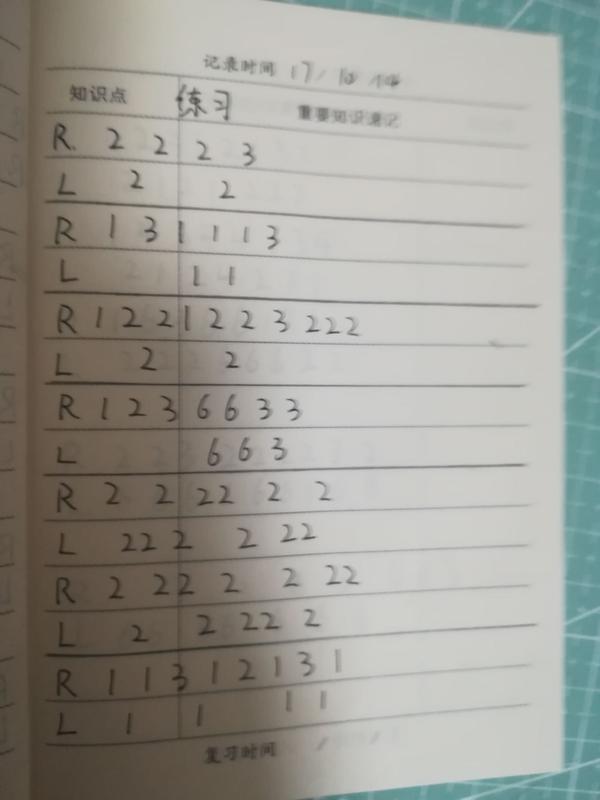 记录时间 17/10 14
知识点 练习 重要知识速记
R 2 2 2 3
L 2 2
R 1 3 1 1 1 3
L 1 1
R 1 2 2 1 2 2 3 2 2 2
L 2 2
R 1 2 3 6 6 3 3
L 6 6 3
R 2 2 22 2 2
L 22 2 2 22
R 2 22 2 2 22
L 2 2 22 2
R 1 1 3 1 2 1 3 1
L 1 1 1 1
复习时间 / /